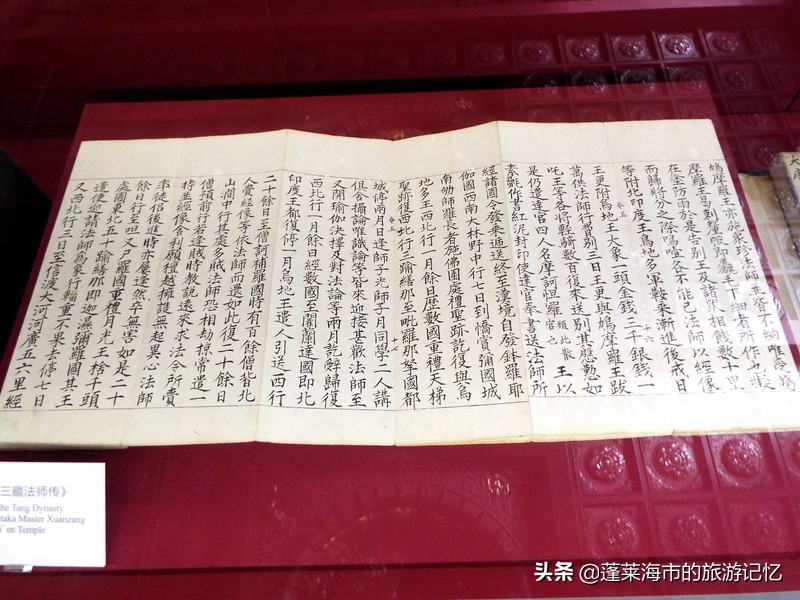 鳩摩羅王亦施眾珍法師並皆不納唯受鳩
摩羅王曷剌釐帔即麁毛下細者所作也擬
在塗防雨於是告別王及諸眾相餞數十里
而歸將分之際嗚噎各不能已法師以經像
等附北印度王烏地多軍鞍乘漸進後戒日
王更附烏地王大象一頭金錢三千銀錢一
萬供法師行費別三日王更與鳩摩羅王跋
吒王等各將輕騎數百復來送別其慇懃如
是仍遣達官四人名摩訶怛羅類此散官也王以
素氎作書紅泥封印使達官奉書送法師所
經諸國令發乘遞送終至漢境自發鉢羅耶
伽國西南大林野中行七日到憍賞彌國城
南劬師羅長者施佛園處禮聖跡訖復與烏
地多王西北行一月餘日歷數國重禮天梯
聖跡復西北行三踰繕那至毗羅那拏國都
城停兩月日逢師子光師子月同學二人講
俱舍攝論唯識論等皆來迎接甚歡法師至
又開瑜伽決擇及對法論等兩月訖辭歸復
西北行一月餘日經數國至闍蘭達國即北
印度王都復停一月烏地王遣人引送西行
二十餘日至僧訶補羅國時有百餘僧皆北
人齎經像等依法師而還如此復二十餘日
山澗中行其處多賊法師恐相劫掠常遣一
僧預前行若逢賊時教說遠來求法今所齎
持並經像舍利願檀越擁護無起異心法師
率徒侶後進時亦屢逢然卒無害如是二十
餘日行至呾叉尸羅國重禮月光王捨千頭
處國東北五十踰繕那即迦濕彌羅國其王
遣使迎請法師為象行輜重不果去停七日
又西北行三日至信渡大河河廣五六里經
三藏法师传》
he Tang Dynasty
itaka Master Xuanzang
i'en Temple
头条 @蓬莱海市的旅游记忆